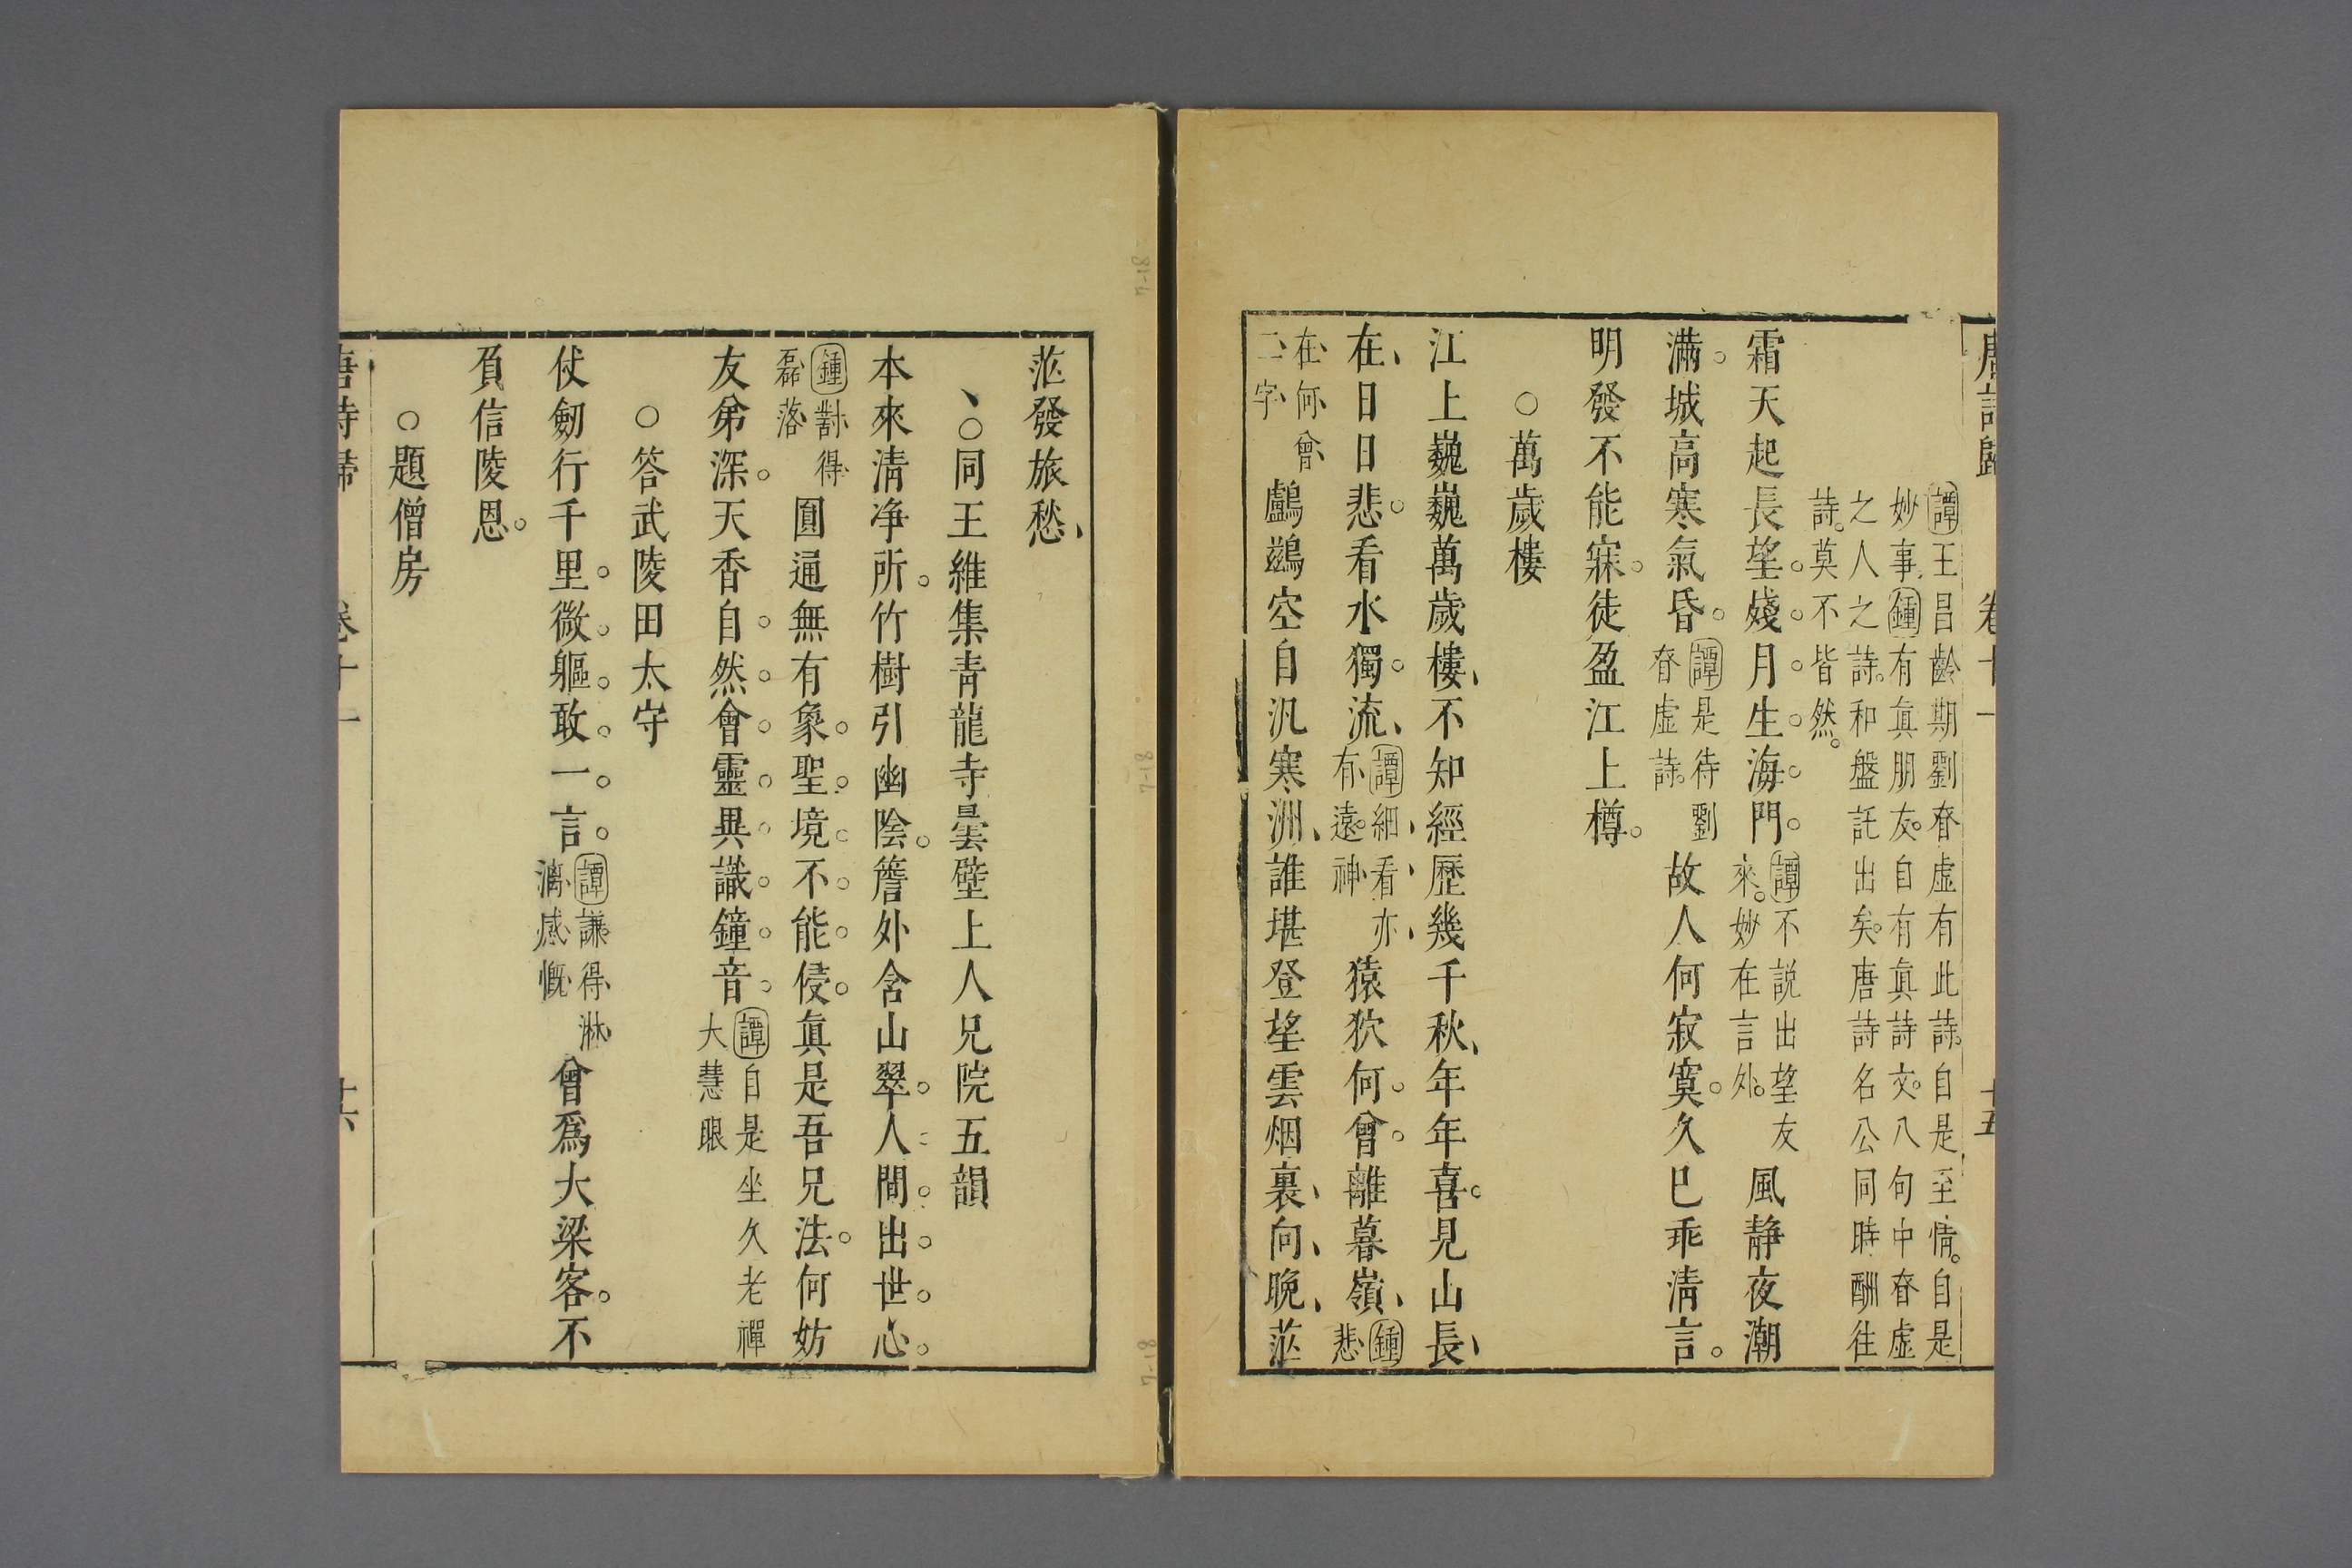 唐詩歸 卷十一 十五
譚王昌齡期劉眘虛有此詩自是至情自是
妙事鍾有眞朋友自有眞詩文八句中眘虛
之人之詩和盤託出矣唐詩名公同時酬往
詩莫不皆然
霜天起長望殘月生海門譚不説出望友來妙在言外風静夜潮
滿城高寒氣昏譚是待劉眘虛詩故人何寂寞久已乖清言
明發不能寐徒盈江上樽
○萬歲樓
江上巍巍萬歲樓不知經歷幾千秋年年喜見山長
在日日悲看水獨流譚細看亦有遠神猿狖何曾離暮嶺鍾悲
在何曾二字鸕鷀空自汎寒洲誰堪登望雲烟裏向晚茫
茫發旅愁
、○同王維集青龍寺曇壁上人兄院五韻
本來清净所竹樹引幽陰簷外含山翠人間出世心
鍾對得磊落圓通無有象聖境不能侵眞是吾兄法何妨
友弟深天香自然會靈異識鐘音譚自是坐久老禪大慧眼
○答武陵田太守
仗劒行千里微軀敢一言譚謙得淋漓感慨曾爲大梁客不
負信陵恩
○題僧房
唐詩歸 卷十一 十六
7-18
7-18
7-18